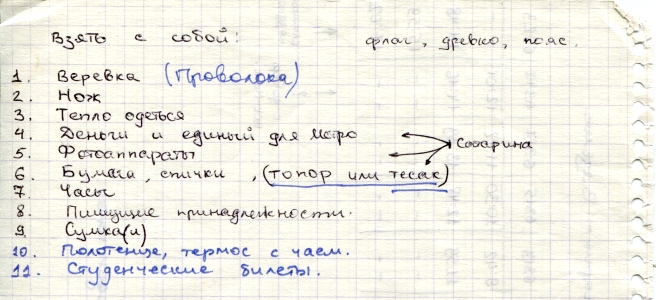 Взять с собой: флаг, древко, пояс.
1. Веревка (Проволока)
2. Нож
3. Тепло одеться
4. Деньги и единый для метро
5. Фотоаппараты
6. Бумага, спички, (топор или тесак)
7. Часы
8. Пишущие принадлежности.
9. Сумка(и)
10. Полотенце, термос с чаем.
11. Студенческие билеты.